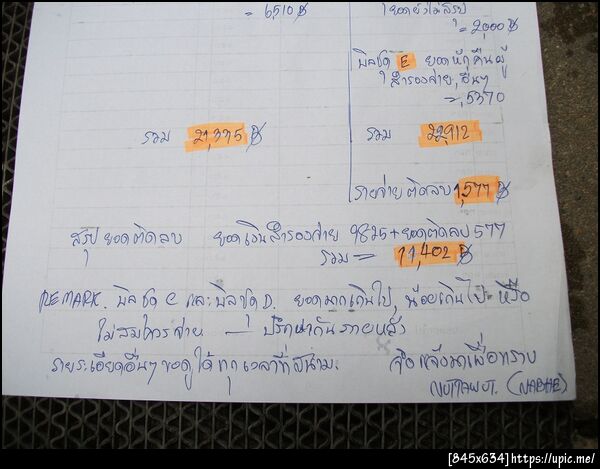 = 6,510 ฿
ยอดยังไม่สรุป
= 2,000 ฿
บิลชุด E ยอดหักคืนผู้
สำรองจ่าย, อื่นๆ
= 5,370
รวม 21,335 ฿
รวม 22,912
รายจ่ายติดลบ 1,577 ฿
สรุป ยอดติดลบ ยอดเงินสำรองจ่าย 9825 + ยอดติดลบ 577
รวม = 11,402 ฿
REMARK. บิลชุด C และบิลชุด D. ยอดมากเกินไป, น้อยเกินไป หรือ
ไม่สมควรจ่าย — ปรึกษากันภายหลัง
รายละเอียดอื่นๆ ขอดูได้ทุกเวลาที่สนาม. จึงแจ้งมาเพื่อทราบ
(NABHE)
[845x634]https://upic.me/